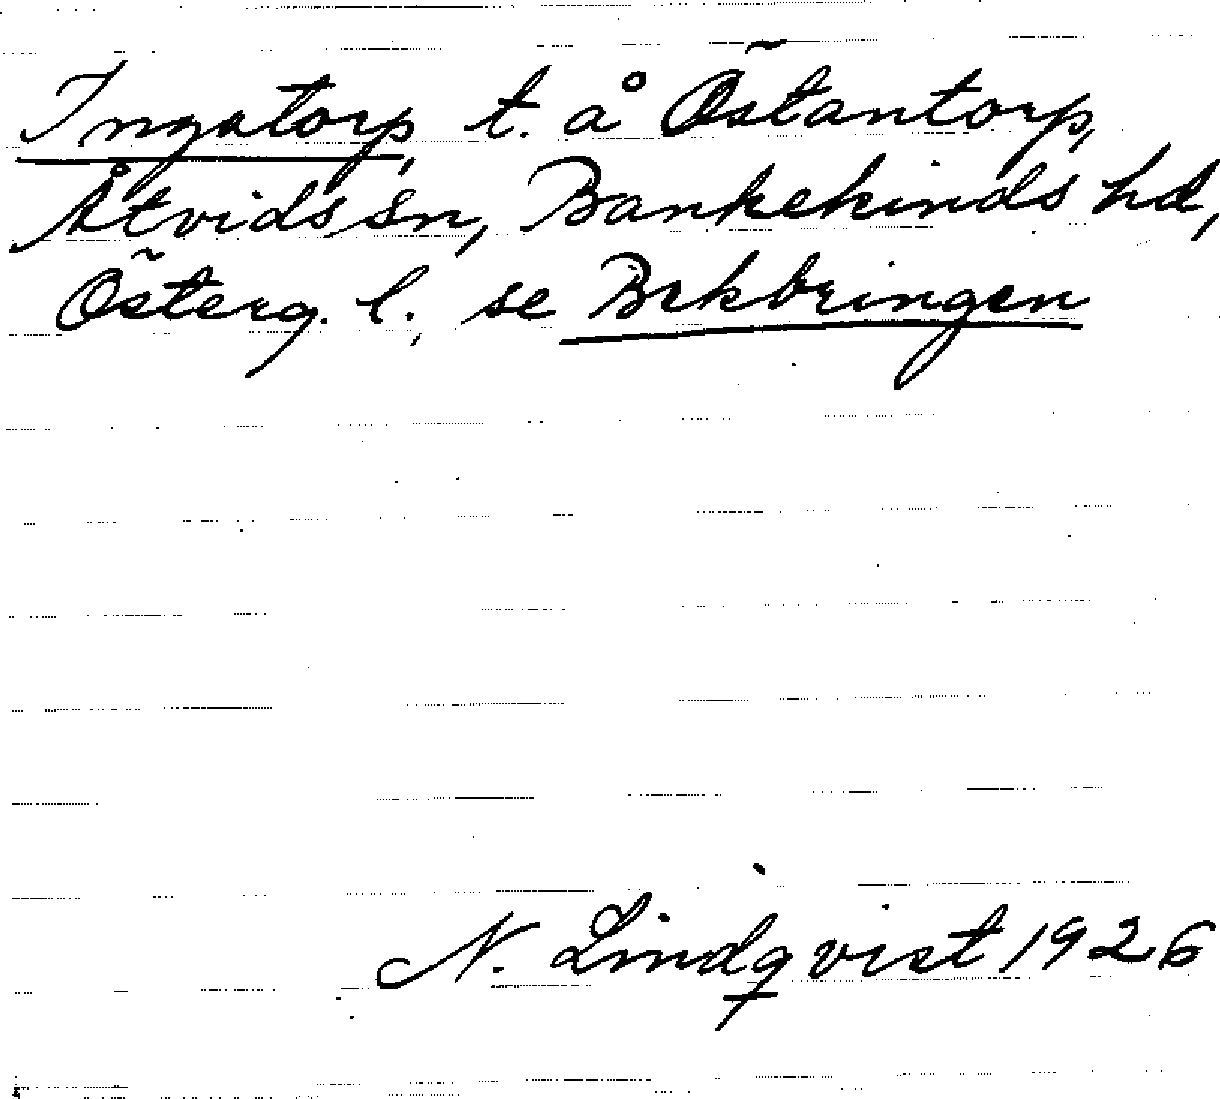 Ingatorp, t. å Östantorp,
Åtvids sn, Bankekinds hd,
Österg. l., se Bekbringen
N. Lindqvist 1926